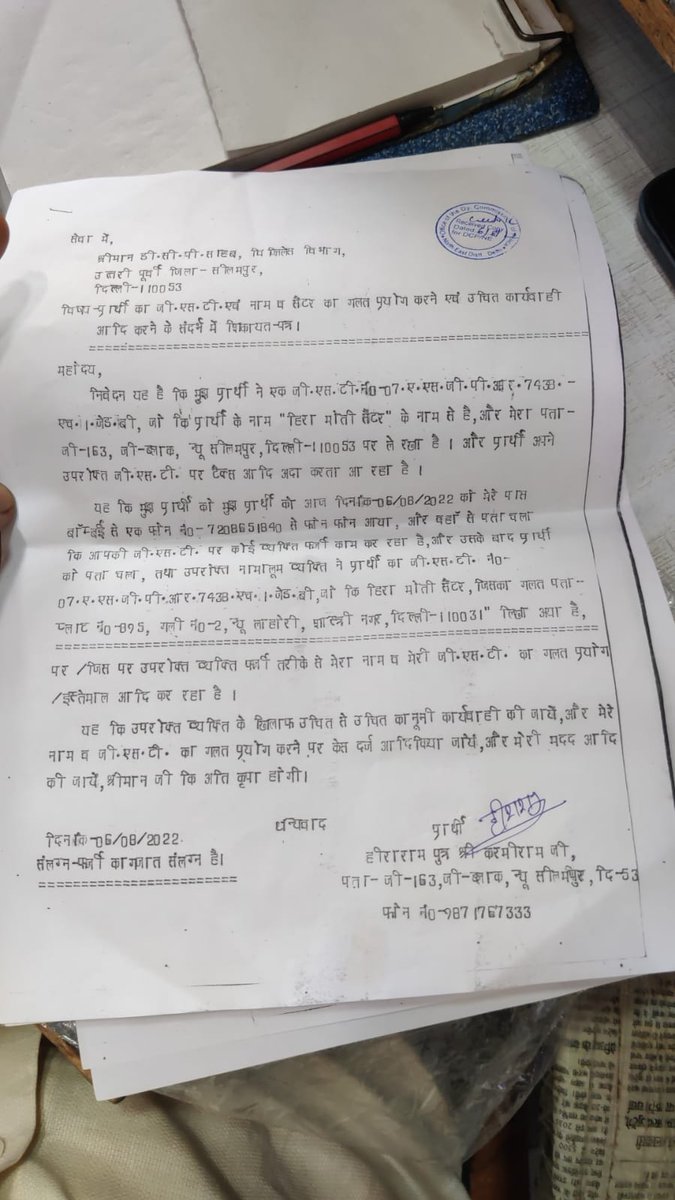 Office of the Dy. Commissioner of Police
Received
Dated
for DCP/NE
North East Distt. Delhi
सेवा में,
श्रीमान डी.सी.पी.साहब, विजिलेंस विभाग,
उत्तरी पूर्वी जिला-सीलमपुर,
दिल्ली-110053
विषय-प्रार्थी का जी.एस.टी.एवं नाम व सैंटर का गलत प्रयोग करने एवं उचित कार्यवाही
आदि करने के संदर्भ में शिकायत-पत्र।
महोदय,
निवेदन यह है कि मुझ प्रार्थी ने एक जी.एस.टी.नं0-07.ए.एस.जी.पी.आर.7438.-
एच.1.जेड.बी, जो कि प्रार्थी के नाम "हिरा मोती सैंटर" के नाम से है,और मेरा पता-
जी-163, जी-ब्लाक, न्यू सीलमपुर,दिल्ली-110053 पर ले रखा है । और प्रार्थी अपने
उपरोक्त जी.एस.टी. पर टैक्स आदि अदा करता आ रहा है ।
यह कि मुझ प्रार्थी को मुझ प्रार्थी को आज दिनांक-06/08/2022 को मेरे पास
बॉम्बई से एक फोन नं0-7208651840 से फोन फोन आया, और वहाँ से पता चला
कि आपकी जी.एस.टी. पर कोई व्यक्ति फर्जी काम कर रहा है,और उसके बाद प्रार्थी
को पता चला, तथा उपरोक्त नामालूम व्यक्ति ने प्रार्थी का जी.एस.टी. नं0-
07.ए.एस.जी.पी.आर.7438.एच.1.जेड.बी,जो कि हिरा मोती सैंटर,जिसका गलत पता-
प्लाट नं0-895, गली नं0-2,न्यू लाहोरी, शास्त्री नगर,दिल्ली-110031" लिखा अया है,
पर /जिस पर उपरोक्त व्यक्ति फर्जी तरीके से मेरा नाम व मेरी जी.एस.टी. का गलत प्रयोग
/इस्तेमाल आदि कर रहा है ।
यह कि उपरोक्त व्यक्ति के खिलाफ उचित से उचित कानूनी कार्यवाही की जायें,और मेरे
नाम व जी.एस.टी. का गलत प्रयोग करने पर केस दर्ज आदि किया जायें,और मेरी मदद आदि
की जायें,श्रीमान जी कि अति कृपा होगी।
धन्यवाद
प्रार्थी
दिनांक-06/08/2022.
संलग्न-फर्जी कागजात संलग्न है।
हीराराम पुत्र श्री करमीराम जी,
पता- जी-163,जी-ब्लाक, न्यू सीलमपुर, दि-53
फोन नं0-9871767333